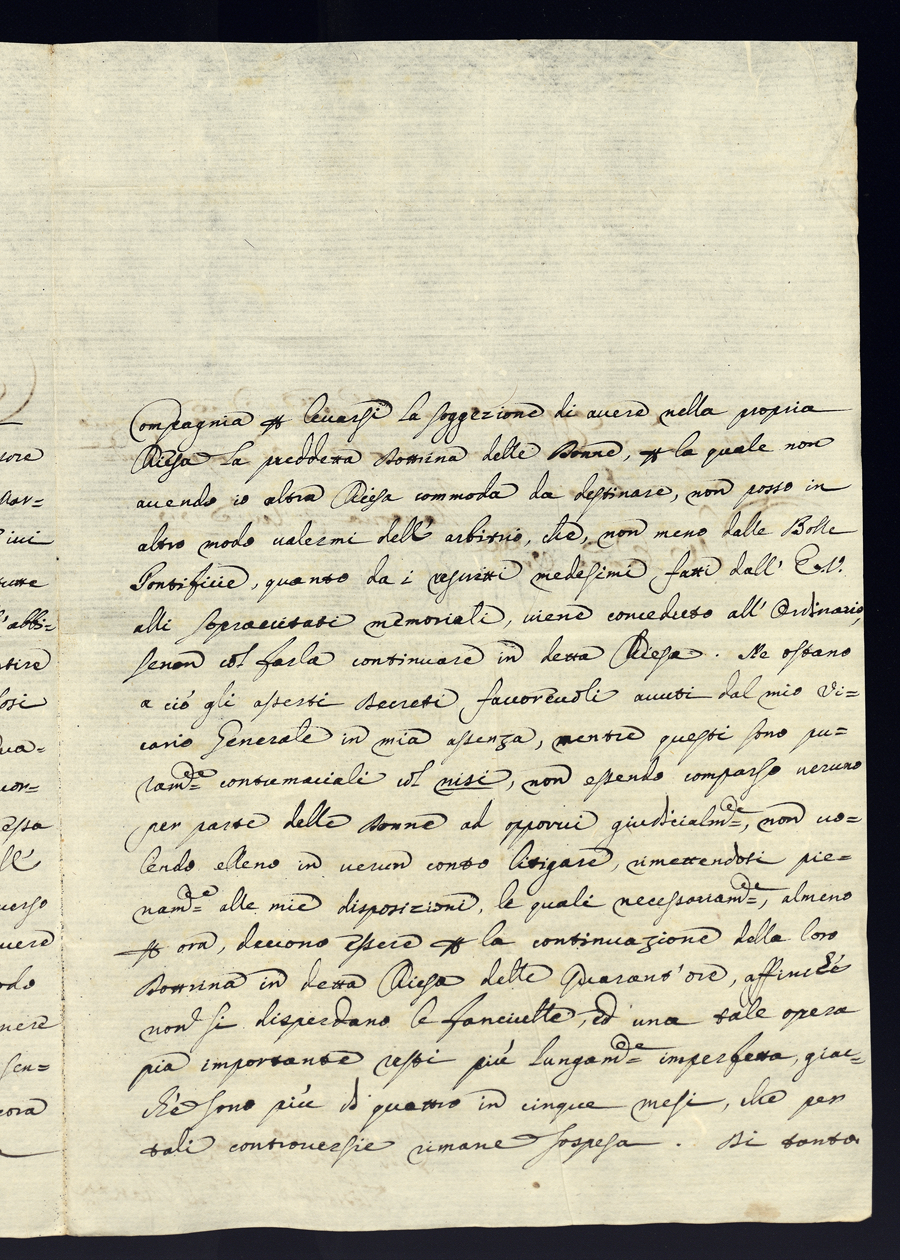 Compagnia ꝑ levarsi la soggezione di avere nella propria
Chiesa la preddetta Dottrina delle Donne, ꝑ la quale non
avendo io altra Chiesa commoda da destinare, non posso in
altro modo valermi dell' arbitrio, che, non meno dalle Bolle
Pontificie, quanto da i rescritti medesimi fatti dall' E.V.
alli sopraccitati memoriali, viene conceduto all' Ordinario,
senon col farla continuare in detta Chiesa. Ne ostano
a ciò gli asserti Decreti favorevoli avuti dal mio Vi=
cario Generale in mia assenza, mentre questi sono pu=
ramde contumaciali col nisi, non essendo comparso veruno
per parte delle Donne ad opporvi giudicialmte, non vo=
lendo elleno in verun conto litigare, rimettendosi pie=
namde alle mie disposizioni, le quali necessariamde, almeno
ꝑ ora, devono essere ꝑ la continuazione della loro
Dottrina in detta Chiesa delle Quarant'ore, affinché
non si disperdano le fanciulle, ed una tale opera
pia importante resti più lungamde imperfetta, giac=
chè sono più di quattro in cinque mesi, che per
tali controversie rimane sospesa. Di tanto
sore
tutte
l'abbi=
rtire
essa
verso
vere
odo
nere
sen=
cora